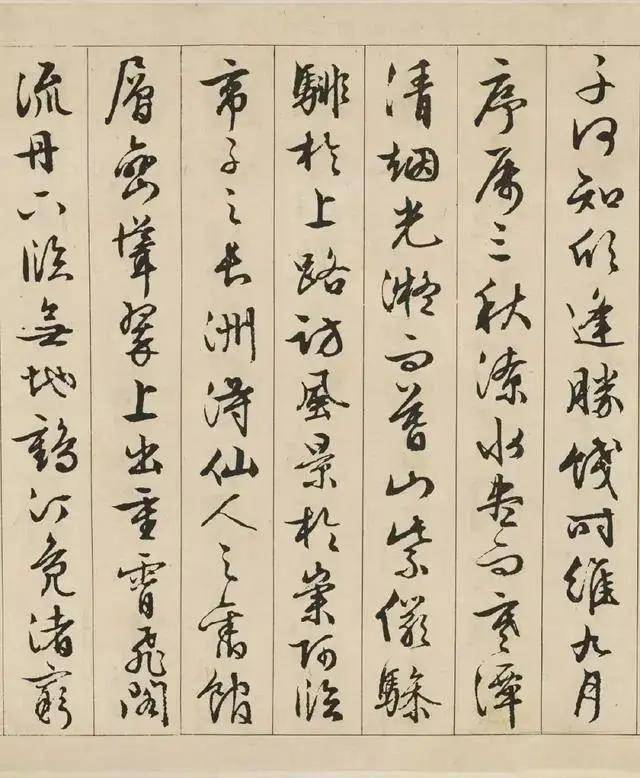 子何知欣逢勝餞時維九月
序屬三秋潦水盡而寒潭
清烟光凝而暮山紫儼驂
騑於上路訪風景於崇阿臨
帝子之長洲得仙人之舊館
層巒聳翠上出重霄飛閣
流丹下臨無地鶴汀鳧渚窮